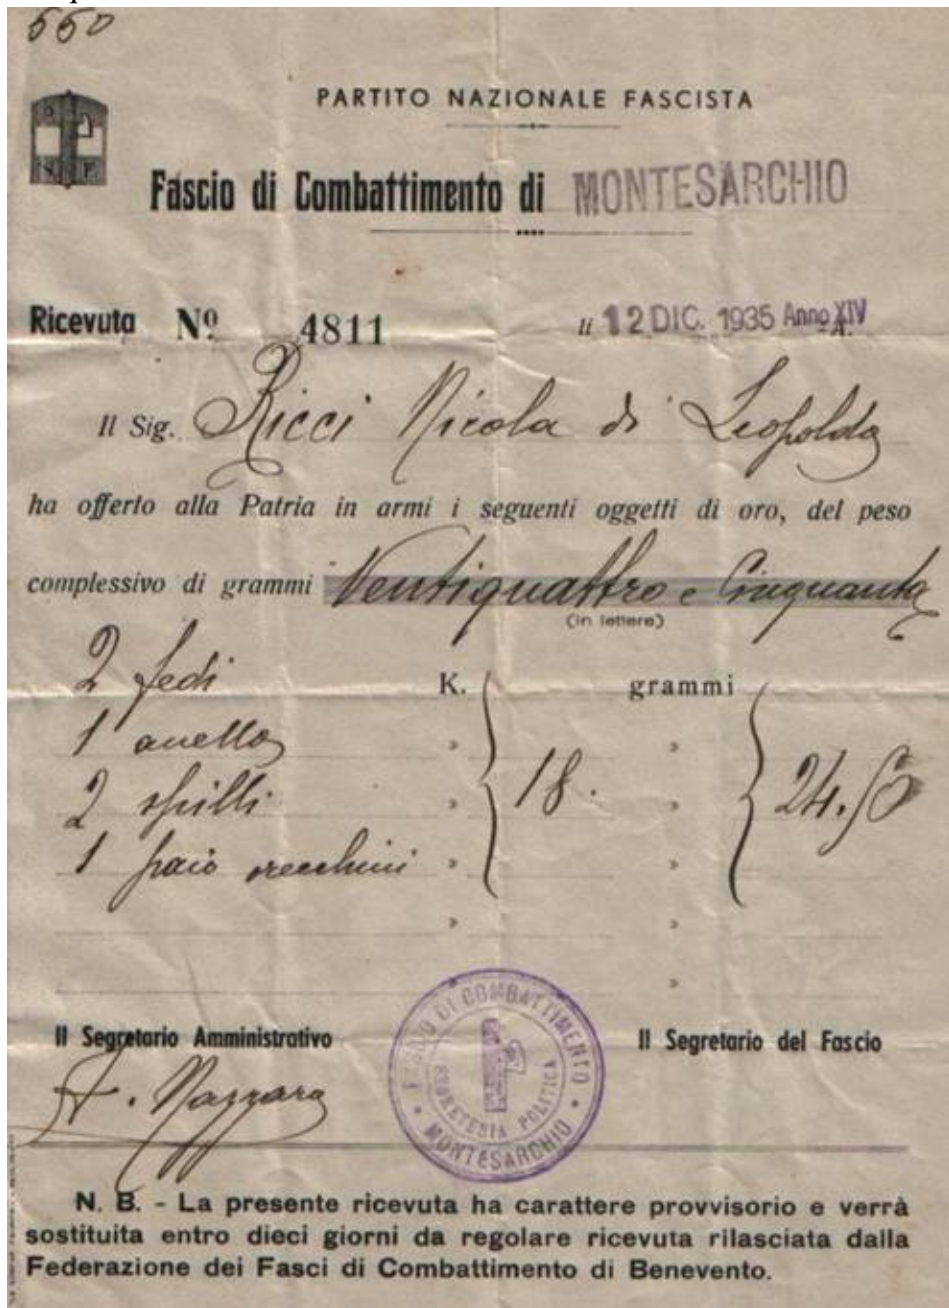 550
PARTITO NAZIONALE FASCISTA
Fascio di Combattimento di MONTESARCHIO
Ricevuta Nº 4811 li 12 DIC. 1935 Anno XIV
Il Sig. Ricci Nicola di Leopoldo
ha offerto alla Patria in armi i seguenti oggetti di oro, del peso
complessivo di grammi Ventiquattro e Cinquanta
(in lettere)
2 fedi K. grammi
1 anello » »
2 spilli » 18. » 24.50
1 paio orecchini » »
» »
»
Il Segretario Amministrativo Il Segretario del Fascio
FASCIO DI COMBATTIMENTO
SEGRETERIA POLITICA
MONTESARCHIO
N. B. - La presente ricevuta ha carattere provvisorio e verrà
sostituita entro dieci giorni da regolare ricevuta rilasciata dalla
Federazione dei Fasci di Combattimento di Benevento.